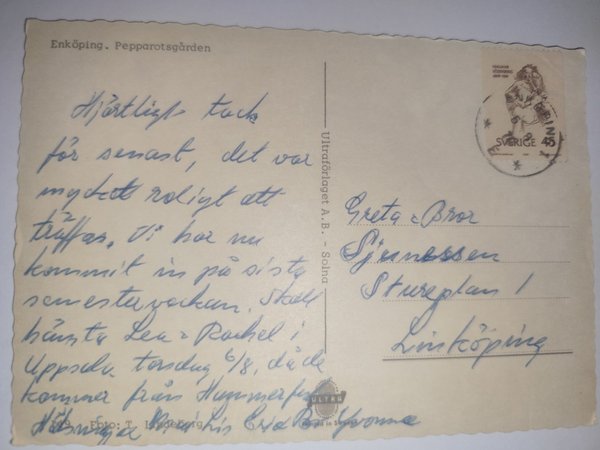 Enköping. Pepparotsgården
Hjärtligt tack
för senast, det var
mycket roligt att
träffas. Vi har nu
kommit in på sista
semesterveckan. Skall
hämta Lea = Rachel i
Uppsala torsdag 6/8, då de
kommer från Hammerfest
Hälsningar Eric Yvonne
Foto: T.
Ultraförlaget A.B. - Solna
ULTRA
SVERIGE 45
Greta = Bror
Sjunesson
Stureplan 1
Linköping